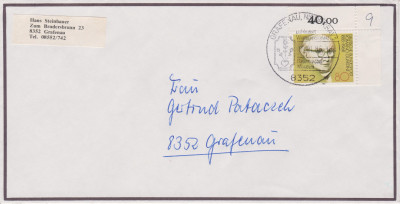 Hans Steinbauer
Zum Bruderbrunn 23
8352 Grafenau
Tel. 08552/742
40,00
9
8352
80
Frau
Gertrud Pataczek
8352 Grafenau